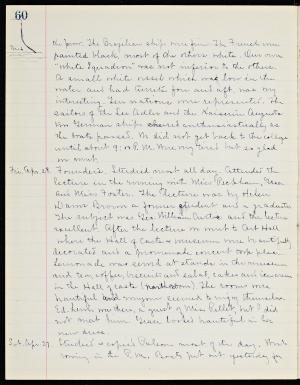 60
the four. The Brazilian ships were fine. The French were
painted black, most of the others white. Our own
"White Squadron" was not inferior to the others.
A small white vessel which was low in the
water and had terrible fore and aft, was very
interesting. Ten nations were represented. The
sailors of the Leo Adler and the Kaiserin Augusta
the German ships cheered enthusiastically as
the boats passed. We did not get back to the college
until about 9:00 P.M. Were very tired but so glad
we went.
Fri. Apr. 28. Founder's. Studied most all day. Attended the
lecture in the evening with Miss Peckham,
and Miss Foster. The lecture was by Helen
Dawes Brown a former student and a graduate.
The subject was Geo. William Curtis and the lecture
excellent. After the lecture we went to Art Hall
where the Hall of Casts & museum was beautifully
decorated and a Promenade concert took place.
Lemonade was served at stands in the museum
and tea, coffee, biscuits and salad, cakes and ices
in the Hall of Casts (north room) The rooms were
beautiful and everyone seemed to enjoy themselves.
Ed. was there, a guest of Miss but I did
not meet him. Grace looked beautiful in her
new dress.
Sat. Apr. 29. Studied & copied most of the day. Went
rowing in the P.M. Boats put out yesterday for